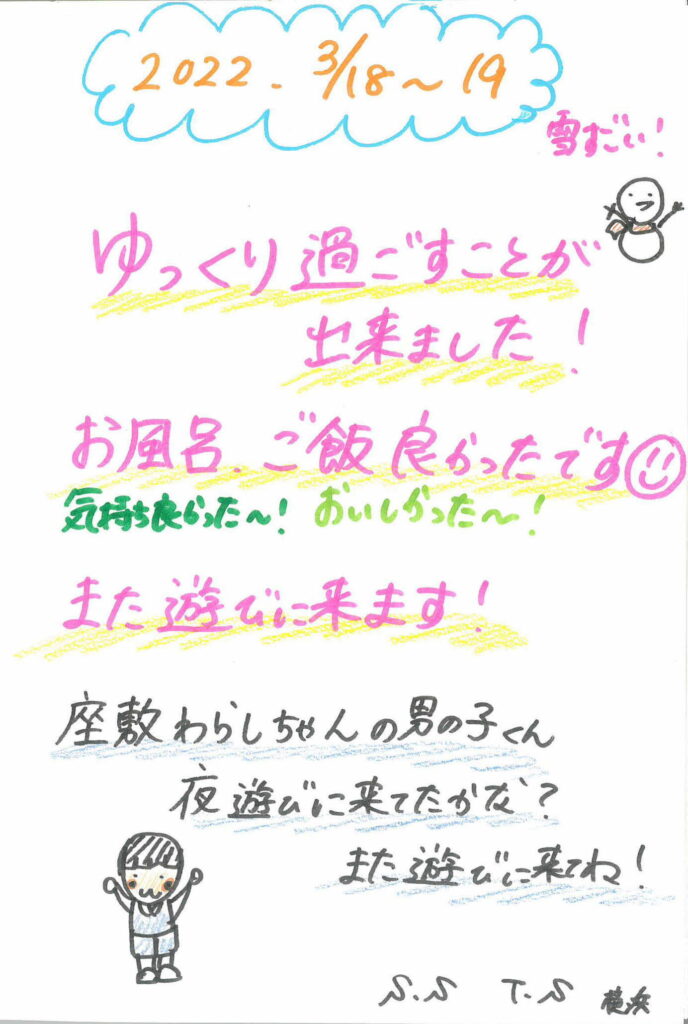 2022. 3/18～19
雪すごい!
ゆっくり過ごすことが
出来ました!
お風呂.ご飯良かったです
気持ち良かった～! おいしかった～!
また遊びに来ます!
座敷わらしちゃんの男の子くん
夜遊びに来てたかな?
また遊びに来てね!
S.S T.S 横浜